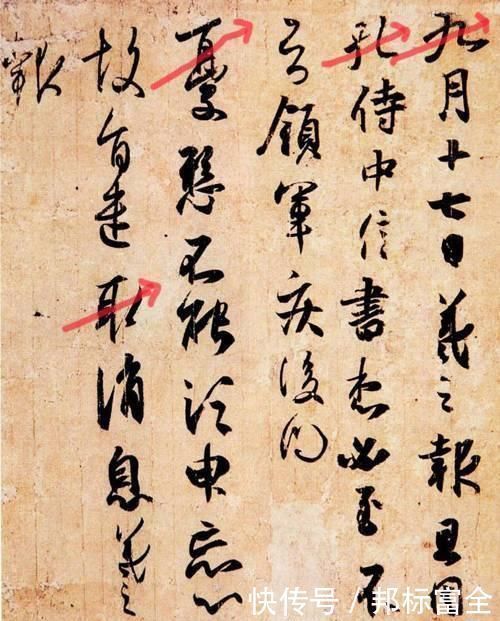 九月十七日羲之報且因
孔侍中信書想必至不
知領軍疾後問
憂懸不能須臾忘心
故旨遣取消息羲之
報
快传号/邦标富全